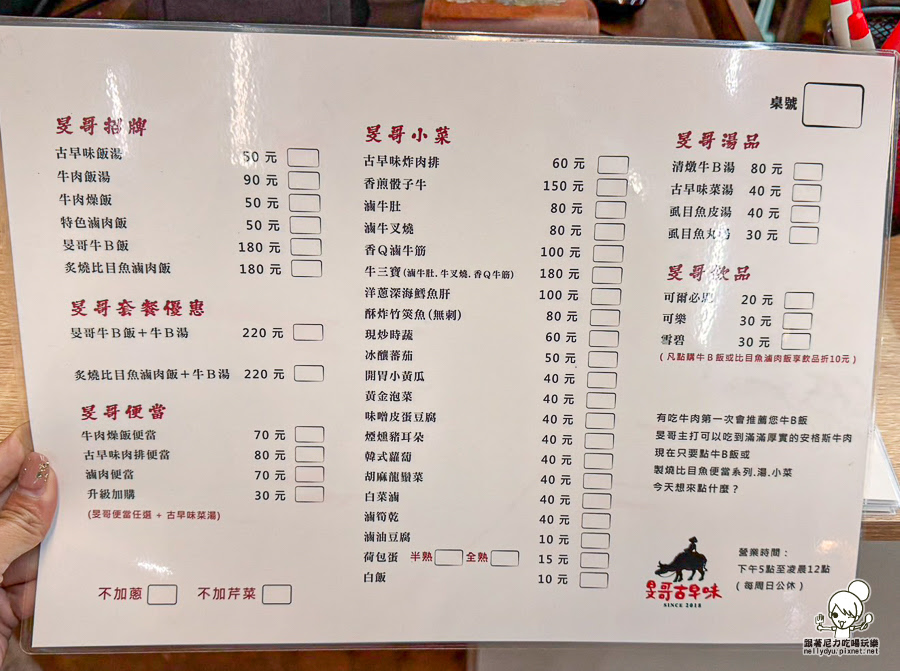 桌號
旻哥招牌
古早味飯湯 50 元
牛肉飯湯 90 元
牛肉燥飯 50 元
特色滷肉飯 50 元
旻哥牛B飯 180 元
炙燒比目魚滷肉飯 180 元
旻哥套餐優惠
旻哥牛B飯＋牛B湯 220 元
炙燒比目魚滷肉飯＋牛B湯 220 元
旻哥便當
牛肉燥飯便當 70 元
古早味肉排便當 80 元
滷肉便當 70 元
升級加購 30 元
(旻哥便當任選 + 古早味菜湯)
不加蔥 不加芹菜
旻哥小菜
古早味炸肉排 60 元
香煎骰子牛 150 元
滷牛肚 80 元
滷牛叉燒 80 元
香Q滷牛筋 100 元
牛三寶(滷牛肚.牛叉燒.香Q牛筋) 180 元
洋蔥深海鱈魚肝 100 元
酥炸竹筴魚(無刺) 80 元
現炒時蔬 60 元
冰釀蕃茄 50 元
開胃小黃瓜 40 元
黃金泡菜 40 元
味噌皮蛋豆腐 40 元
煙燻豬耳朵 40 元
韓式蘿蔔 40 元
胡麻龍鬚菜 40 元
白菜滷 40 元
滷筍乾 40 元
滷油豆腐 10 元
荷包蛋 半熟 全熟 15 元
白飯 10 元
旻哥湯品
清燉牛B湯 80 元
古早味菜湯 40 元
虱目魚皮湯 40 元
虱目魚丸湯 30 元
旻哥飲品
可爾必思 20 元
可樂 30 元
雪碧 30 元
(凡點購牛B飯或比目魚滷肉飯享飲品折10元)
有吃牛肉第一次會推薦您牛B飯
旻哥主打可以吃到滿滿厚實的安格斯牛肉
現在只要點牛B飯或
製燒比目魚便當系列.湯.小菜
今天想來點什麼？
旻哥古早味
SINCE 2018
營業時間：
下午5點至凌晨12點
(每周日公休)
跟著尼力吃喝玩樂
nellydyu.pixnet.net